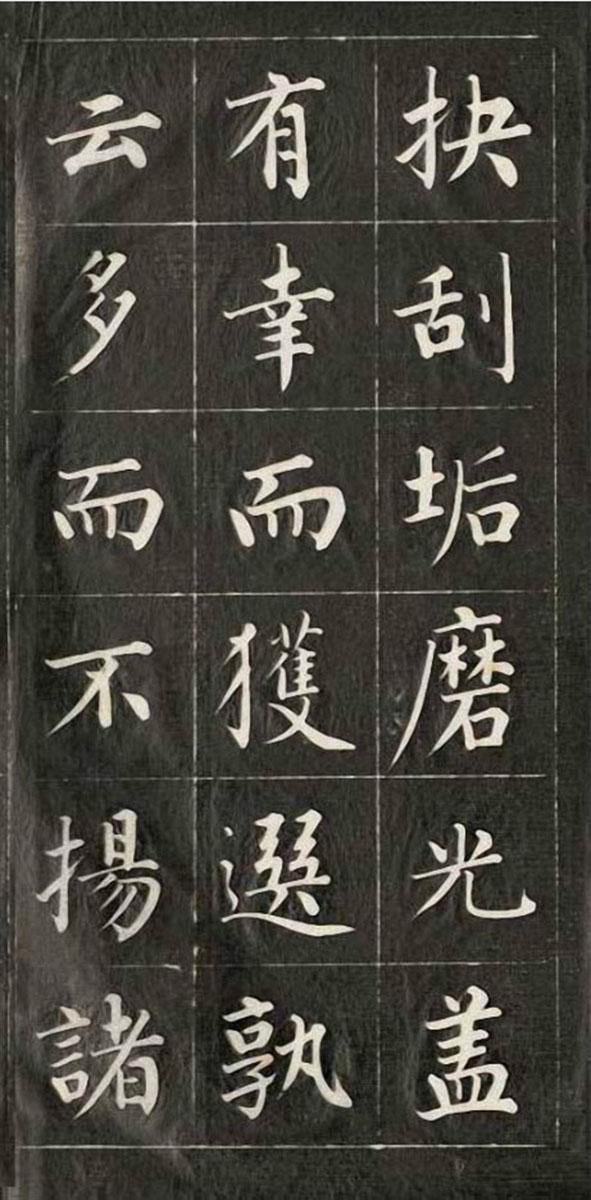 抉刮垢磨光盖
有幸而獲選孰
云多而不揚諸